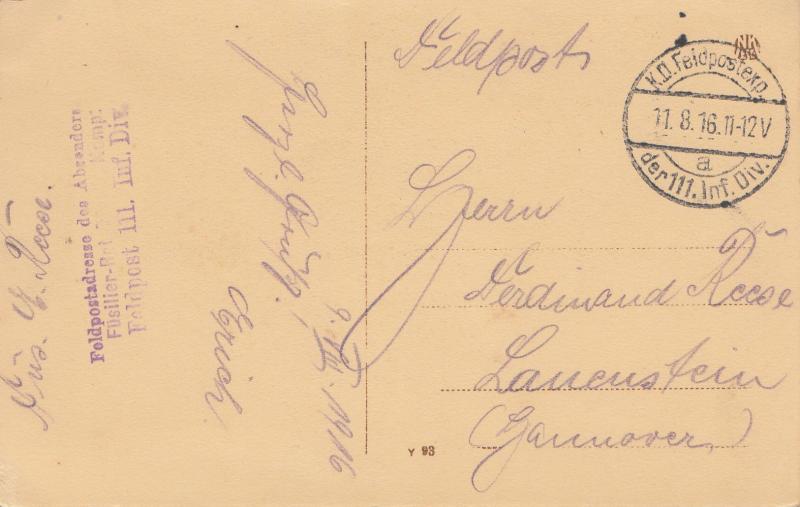 Feldpost
K.D. Feldpostexp.
11. 8. 16. 11-12 V
a
der 111. Inf. Div.
Herrn
Ferdinand Reese
Lauenstein
(Hannover)
Y 93
Herzl. Gruß!
Erich
9. VIII. 1916
Feldpostadresse des Absenders
Füsilier-Komp:
Feldpost 111. Inf. Div.
Füs. E. Reese.